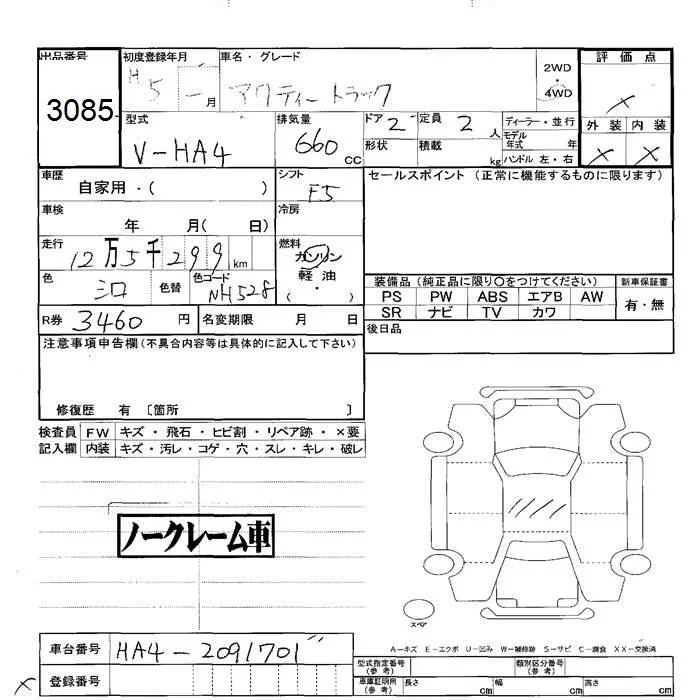 出品番号 初度登録年月 車名・グレード 2WD ・ 4WD 評価点
3085 H5 一 月 アクティートラック ×
型式 排気量 ドア 2 定員 2 人 ディーラー・並行 外装 内装
V-HA4 660 cc 形状 積載 kg モデル年式 年 × ×
ハンドル 左・右
車歴 自家用・( ) シフト F5 セールスポイント (正常に機能するものに限ります)
車検 年 月( 日) 冷房
走行 12万5千299km 燃料 ガソリン
色 シロ 色替 色コード NH528 軽油 ・ ( )
装備品 (純正品に限り○をつけてください) 新車保証書
PS PW ABS エアB AW 有・無
SR ナビ TV カワ
R券 3460 円 名変期限 月 日 後日品
注意事項申告欄(不具合内容等は具体的に記入して下さい)
修復歴 有 〔箇所 〕
検査員 FW キズ・飛石・ヒビ割・リペア跡・×要
記入欄 内装 キズ・汚レ・コゲ・穴・スレ・キレ・破レ
ノークレーム車
スペア
A－キズ E－エクボ U－凹み W－補修跡 S－サビ C－腐食 XX－交換済
車台番号 HA4-2091701 型式指定番号(参考) 類別区分番号(参考)
× 登録番号 車庫証明用(参考) 長さ cm 幅 cm 高さ cm